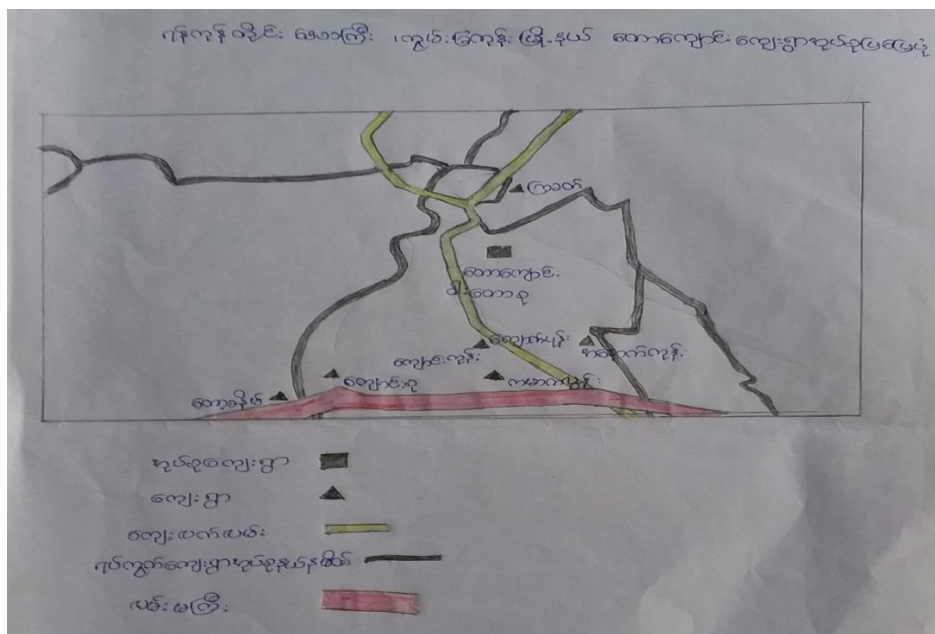 ရန်ကုန်တိုင်း ဒေသကြီး ၊ကွမ်းခြံကုန်း မြို့နယ် တောကျောင်း ကျေးရွာအုပ်စုပြမြေပုံ
ကြခတ်
တောကျောင်း
ဝါးတောစု
ကျောက်ပုန်း
ကျောင်းကုန်း
အနောက်ကုန်း
ကျောင်းစု
ကမာကလွန်း
အုပ်စုကျေးရွာ
ကျေးရွာ
ကျေးလက်လမ်း
ရပ်ကွက်ကျေးရွာအုပ်စုနယ်နမိတ်
လမ်းမကြီး